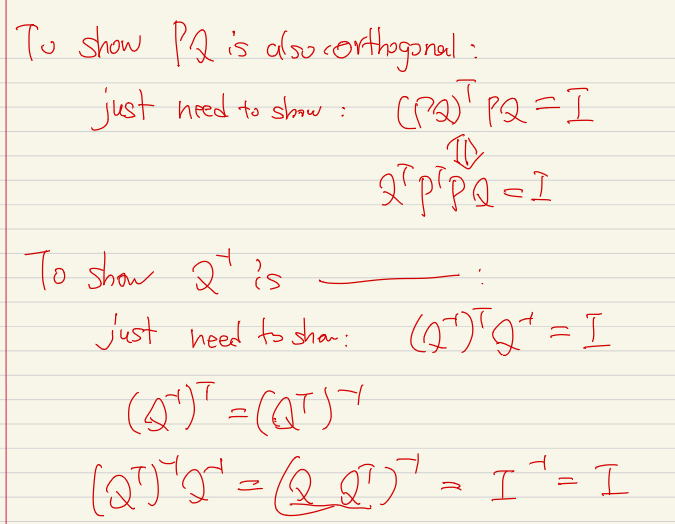 To show PQ is also orthogonal :
just need to show : (PQ)ᵀ PQ = I
⇕
QᵀPᵀPQ = I
To show Q⁻¹ is ______ :
just need to show: (Q⁻¹)ᵀQ⁻¹ = I
(Q⁻¹)ᵀ = (Qᵀ)⁻¹
(Qᵀ)⁻¹Q⁻¹ = (Q Qᵀ)⁻¹ = I⁻¹ = I